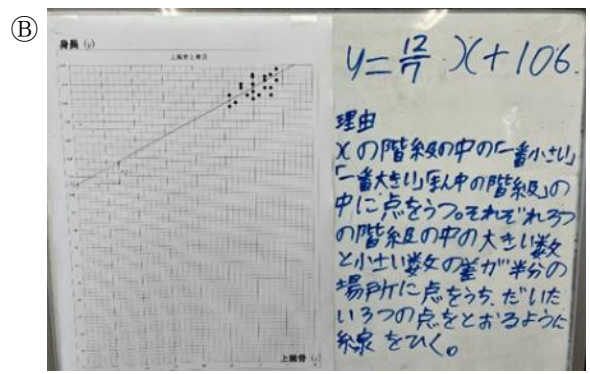 Ⓑ
身長 (y)
上腕骨と身長
上腕骨 (x)
y=12/7 x+106
理由
xの階級の中の「一番小さい」
「一番大きい」「まん中の階級」の
中に点をうつ。それぞれ3つ
の階級の中の大きい数
と小さい数の差が半分の
場所に点をうち、だいた
い3つの点をとおるように
線をひく。